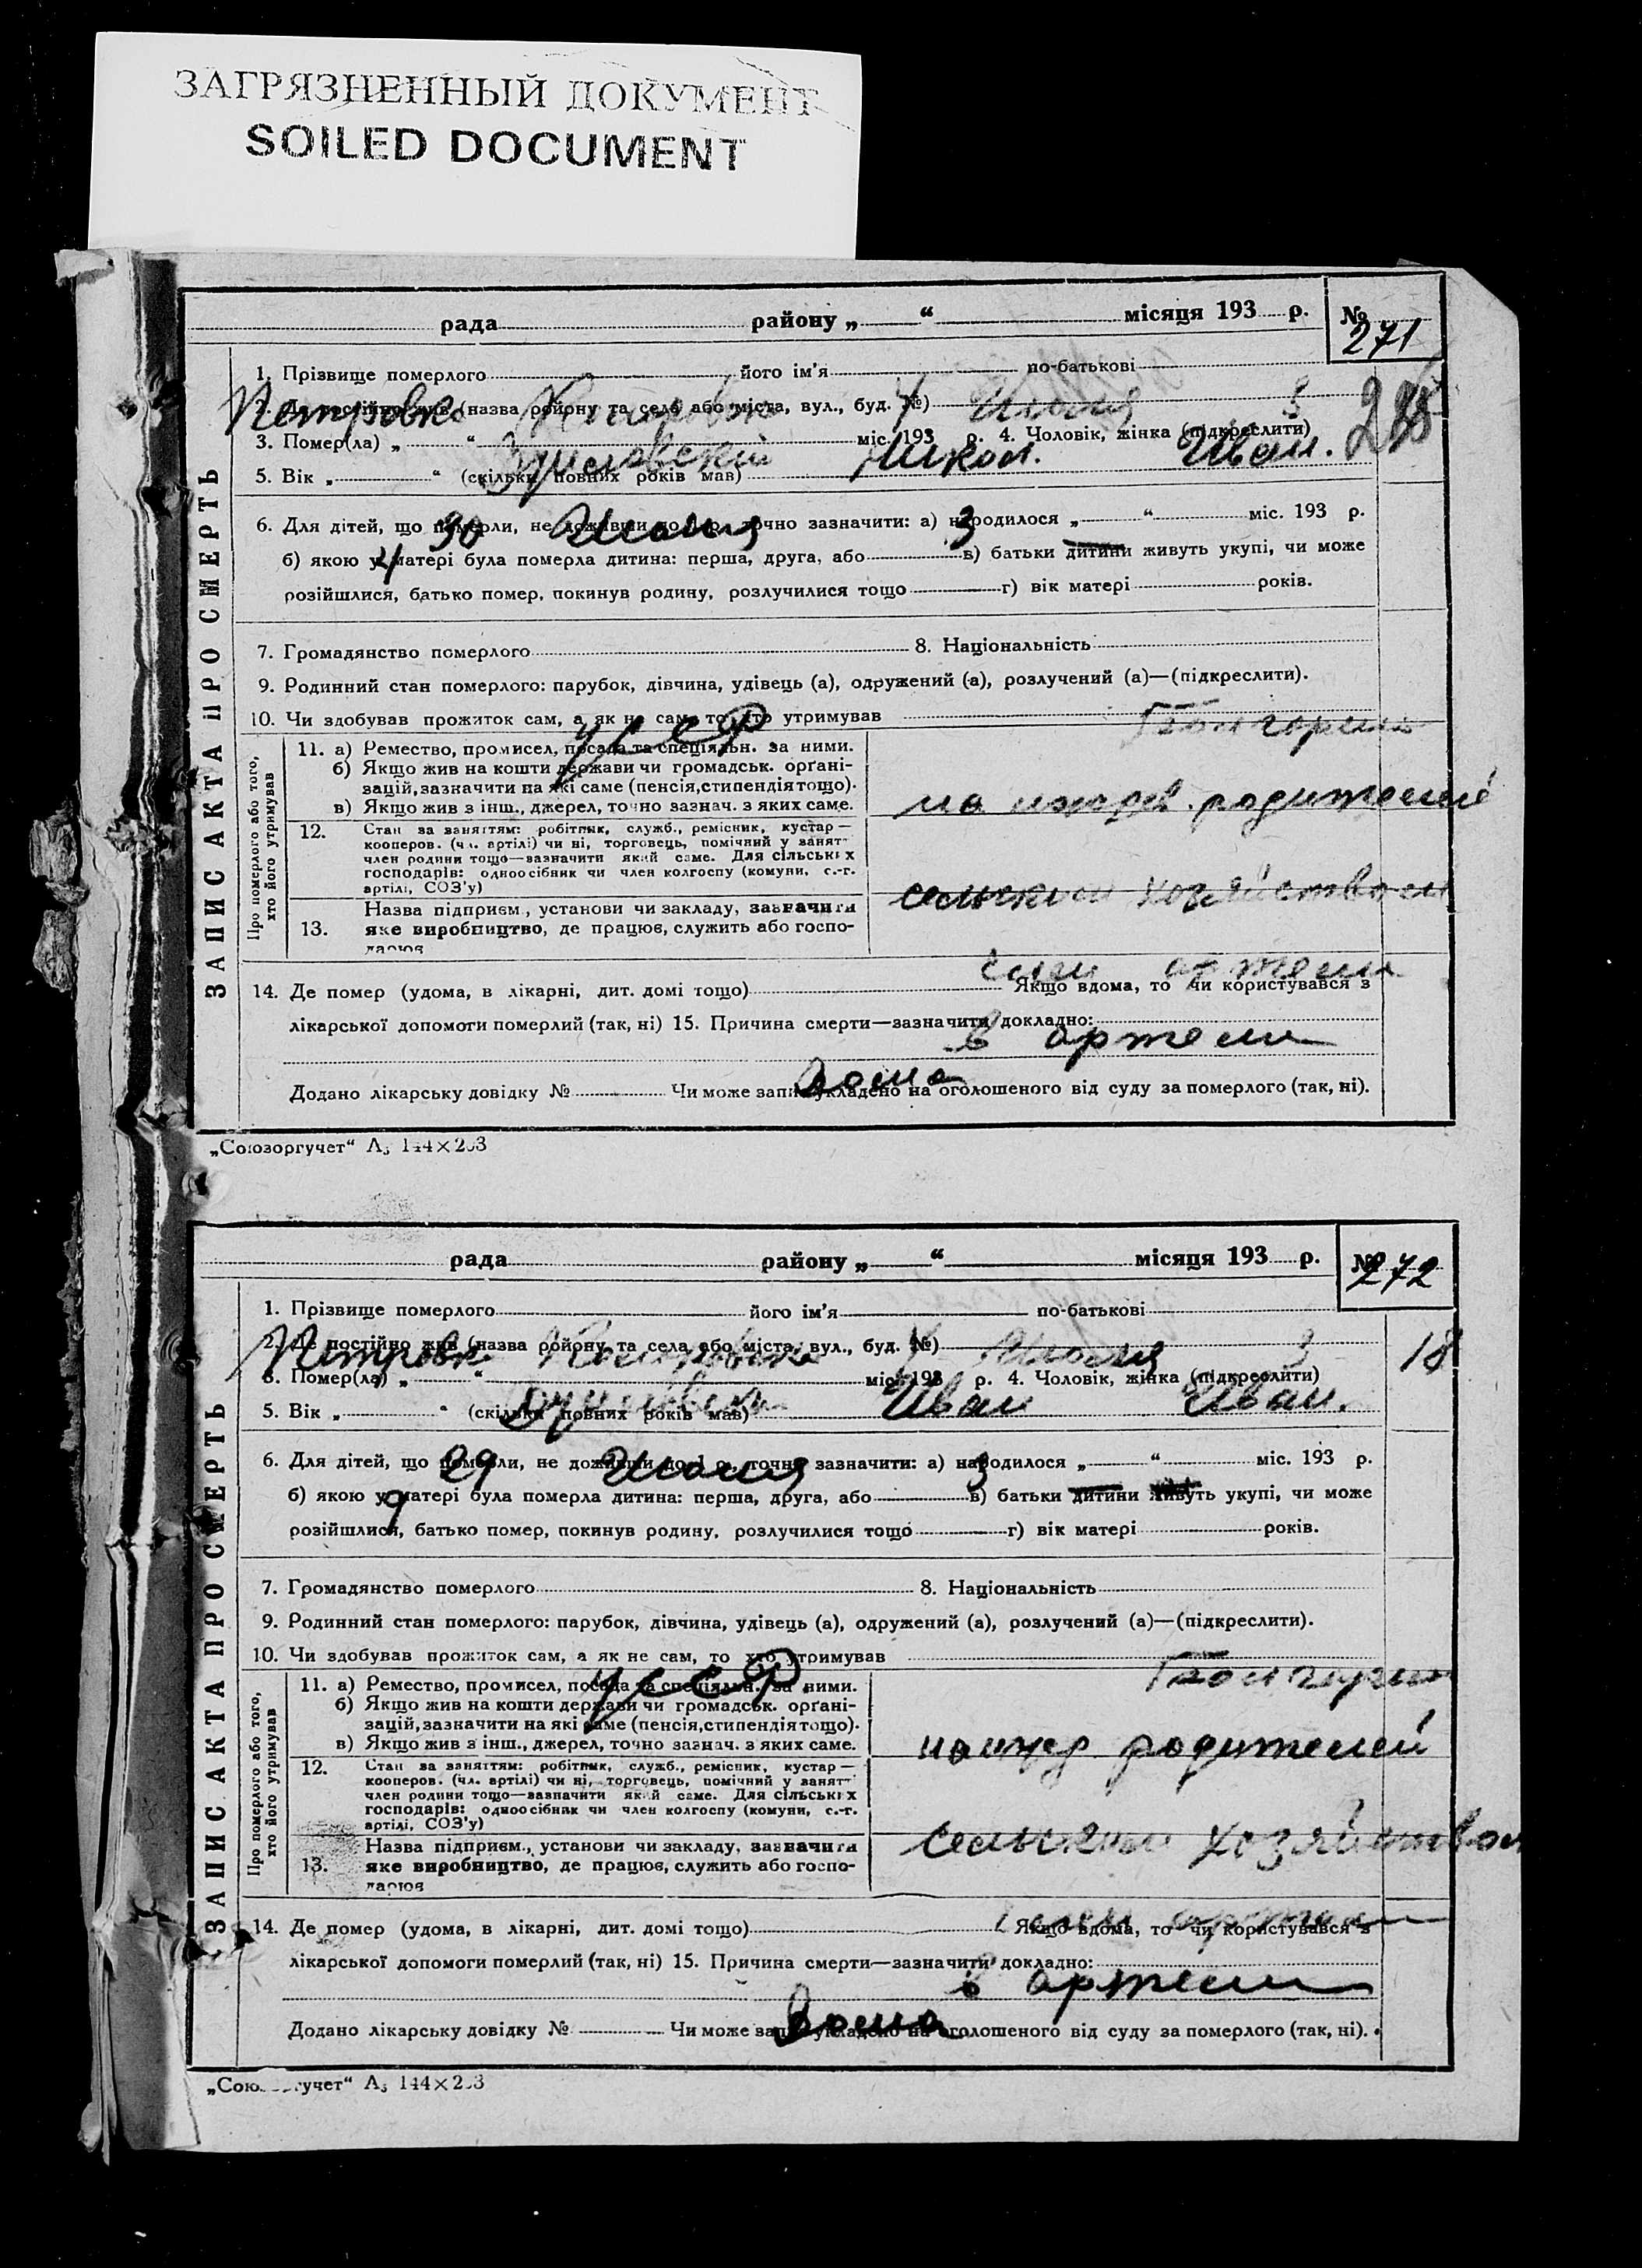 ЗАГРЯЗНЕННЫЙ ДОКУМЕНТ
SOILED DOCUMENT
рада району „ “ місяця 193 р. №
271
1. Прізвище померлого його ім'я по-батькові
2. Де постійно жив (назва ройону та села або міста, вул., буд. №)
Петровка Июня 3
3. Помер(ла) „ “ міс. 193 р. 4. Чоловік, жінка (підкреслити)
Никол. Иван.
5. Вік „ “ (скільки повних років мав)
6. Для дітей, що померли, не доживши до 1 р., точно зазначити: а) народилося „ “ міс. 193 р.
30 Июня 3
б) якою у матері була померла дитина: перша, друга, або в) батьки дитини живуть укупі, чи може
4
розійшлися, батько помер, покинув родину, розлучилися тощо г) вік матері років.
7. Громадянство померлого 8. Національність
9. Родинний стан померлого: парубок, дівчина, удівець (а), одружений (а), розлучений (а)—(підкреслити).
10. Чи здобував прожиток сам, а як не сам, то хто утримував
УССР
11. а) Ремество, промисел, посада та спеціяльн. за ними.
б) Якщо жив на кошти держави чи громадськ. орґані-
зацій, зазначити на які саме (пенсія, стипендія тощо).
в) Якщо жив з інш., джерел, точно зазнач. з яких саме.
на иждев. родителей
12. Стан за заняттям: робітник, служб., ремісник, кустар—
кооперов. (чл. артілі) чи ні, торговець, помічний у занят-
член родини тощо—зазначити який саме. Для сільських
господарів: одноосібник чи член колгоспу (комуни, с.-г.
артілі, СОЗ'у)
сельским хозяйством
13. Назва підприєм., установи чи закладу, зазначити
яке виробництво, де працює, служить або госпо-
дарює
член артели
14. Де помер (удома, в лікарні, дит. домі тощо) Якщо вдома, то чи користувався з
лікарської допомоги померлий (так, ні) 15. Причина смерти—зазначити докладно:
в артели
Дома
Додано лікарську довідку № Чи може запис укладено на оголошеного від суду за померлого (так, ні).
„Союзоргучет“ А₅ 144×203
ЗАПИС АКТА ПРО СМЕРТЬ
Про померлого або того,
хто його утримував
рада району „ “ місяця 193 р. №
272
1. Прізвище померлого його ім'я по-батькові
2. Де постійно жив (назва ройону та села або міста, вул., буд. №)
Петровка Июня 3 18
3. Помер(ла) „ “ міс. 193 р. 4. Чоловік, жінка (підкреслити)
Иван Иван.
5. Вік „ “ (скільки повних років мав)
6. Для дітей, що померли, не доживши до 1 р., точно зазначити: а) народилося „ “ міс. 193 р.
29 Июня 3
б) якою у матері була померла дитина: перша, друга, або в) батьки дитини живуть укупі, чи може
9
розійшлися, батько помер, покинув родину, розлучилися тощо г) вік матері років.
7. Громадянство померлого 8. Національність
9. Родинний стан померлого: парубок, дівчина, удівець (а), одружений (а), розлучений (а)—(підкреслити).
10. Чи здобував прожиток сам, а як не сам, то хто утримував
УССР
11. а) Ремество, промисел, посада та спеціяльн. за ними.
б) Якщо жив на кошти держави чи громадськ. орґані-
зацій, зазначити на які саме (пенсія, стипендія тощо).
в) Якщо жив з інш., джерел, точно зазнач. з яких саме.
на ижд родителей
12. Стан за заняттям: робітник, служб., ремісник, кустар—
кооперов. (чл. артілі) чи ні, торговець, помічний у занят-
член родини тощо—зазначити який саме. Для сільських
господарів: одноосібник чи член колгоспу (комуни, с.-г.
артілі, СОЗ'у)
сельским хозяйством
13. Назва підприєм., установи чи закладу, зазначити
яке виробництво, де працює, служить або госпо-
дарює
член артели
14. Де помер (удома, в лікарні, дит. домі тощо) Якщо вдома, то чи користувався з
лікарської допомоги померлий (так, ні) 15. Причина смерти—зазначити докладно:
в артели
Дома
Додано лікарську довідку № Чи може запис укладено на оголошеного від суду за померлого (так, ні).
„Союзоргучет“ А₅ 144×203
ЗАПИС АКТА ПРО СМЕРТЬ
Про померлого або того,
хто його утримував